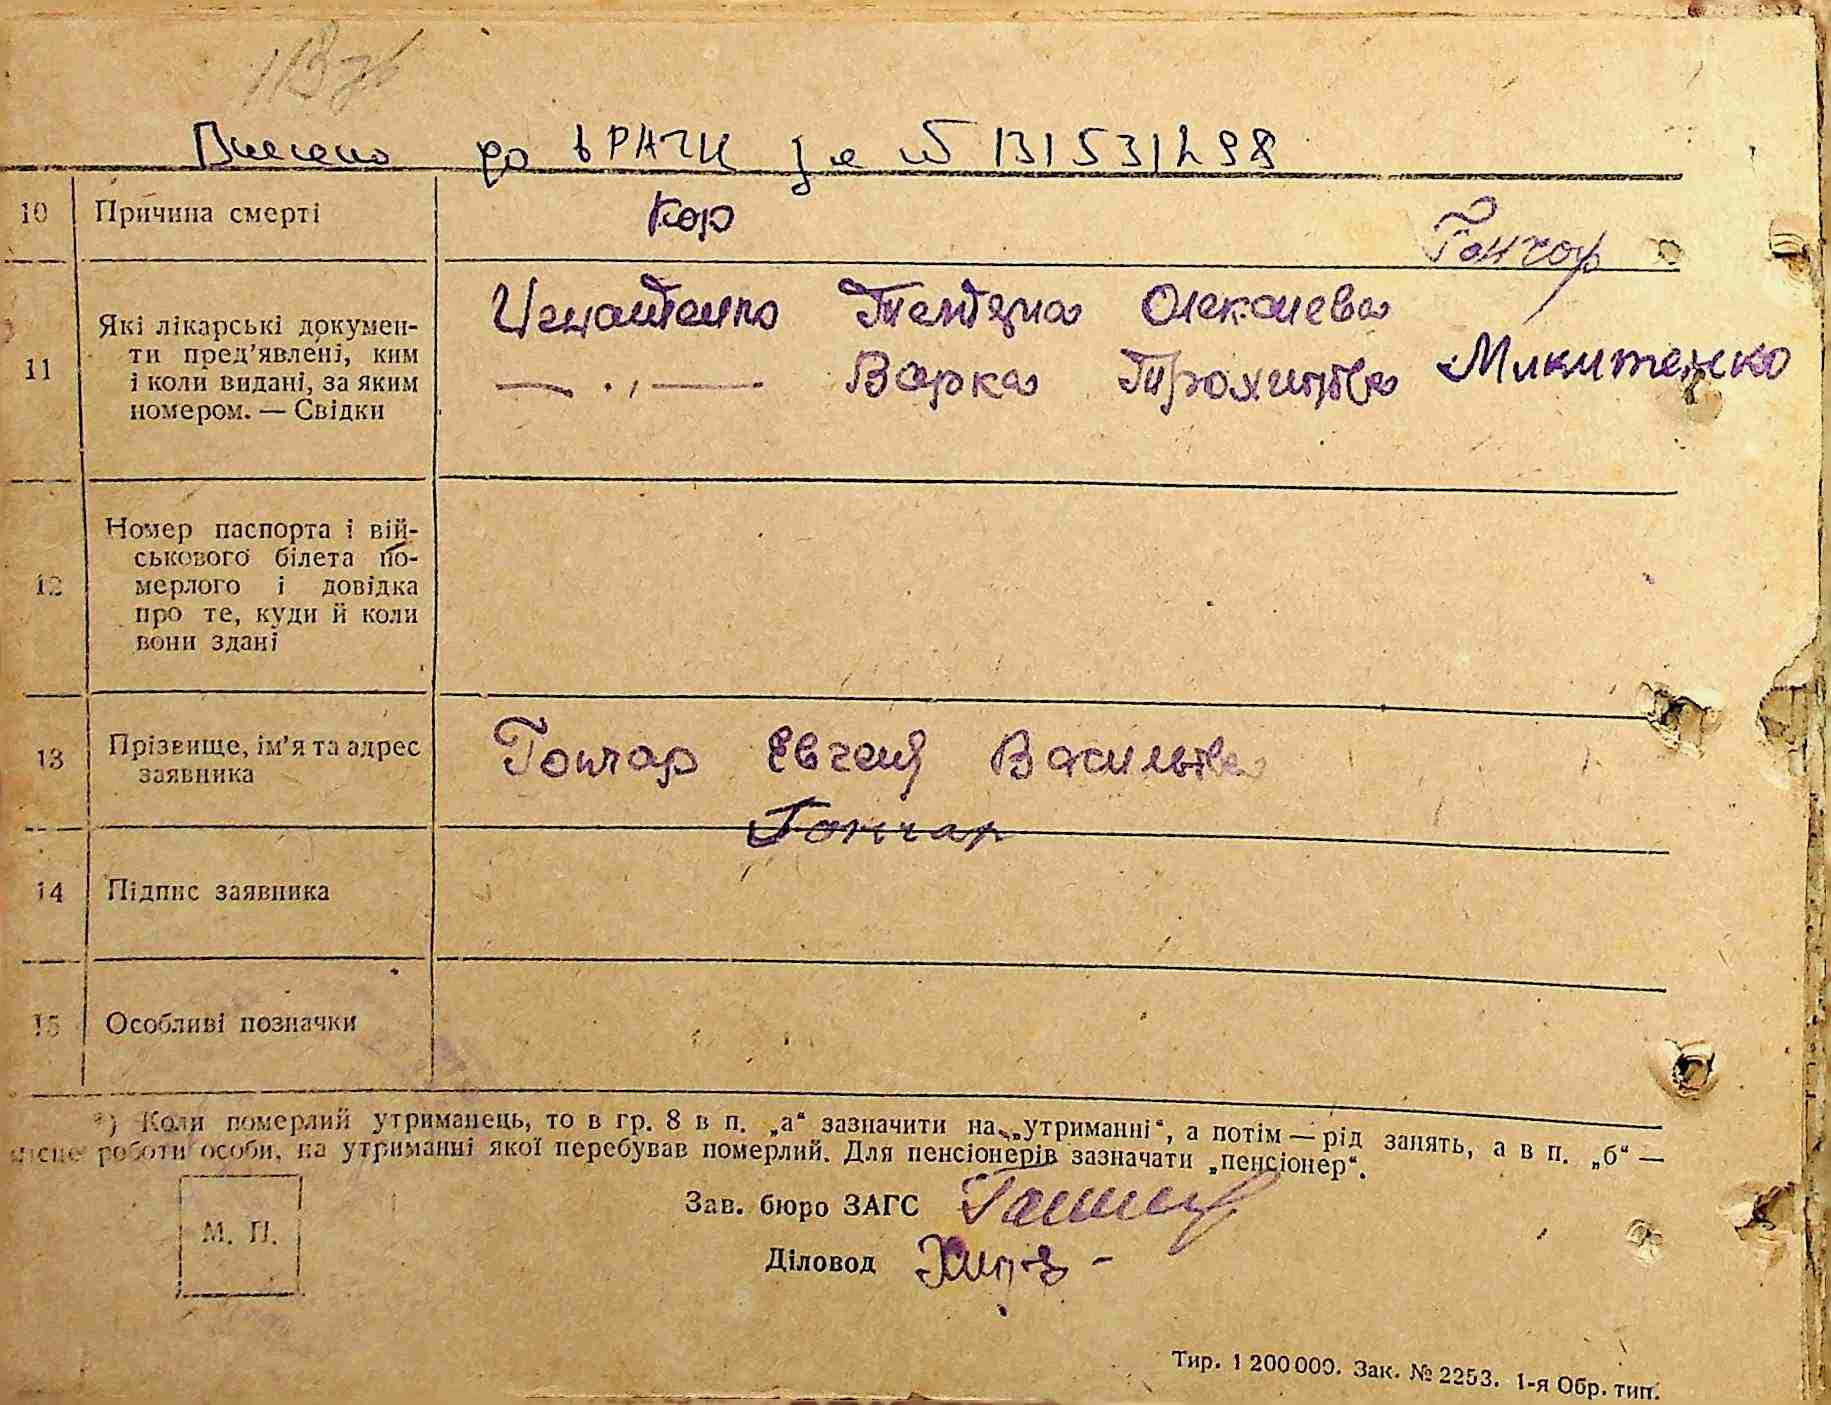 Внесено до ВРАЦС за № 131531298
10 Причина смерті
Кор
Гончар
11 Які лікарські докумен-
ти пред'явлені, ким
і коли видані, за яким
номером. — Свідки
Тетяна Олексіева
— . , — Варка Трохимівна
Микитенко
12 Номер паспорта і вій-
ськового білета по-
мерлого і довідка
про те, куди й коли
вони здані
13 Прізвище, ім'я та адрес
заявника
Гончар Евгенія Василівна
Гончар
14 Підпис заявника
15 Особливі позначки
*) Коли померлий утриманець, то в гр. 8 в п. „а“ зазначити на „утриманні“, а потім — рід занять, а в п. „б“ —
місце роботи особи, на утриманні якої перебував померлий. Для пенсіонерів зазначати „пенсіонер“.
М. П.
Зав. бюро ЗАГС
Діловод
Тир. 1 200 000. Зак. № 2253. 1-я Обр. тип.